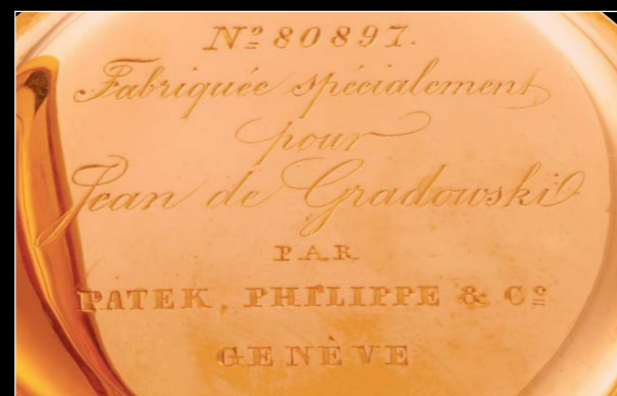 Nº 80897.
Fabriquée spécialement
pour
Jean de Gradowski
PAR
PATEK, PHILIPPE & Cº
GENÈVE